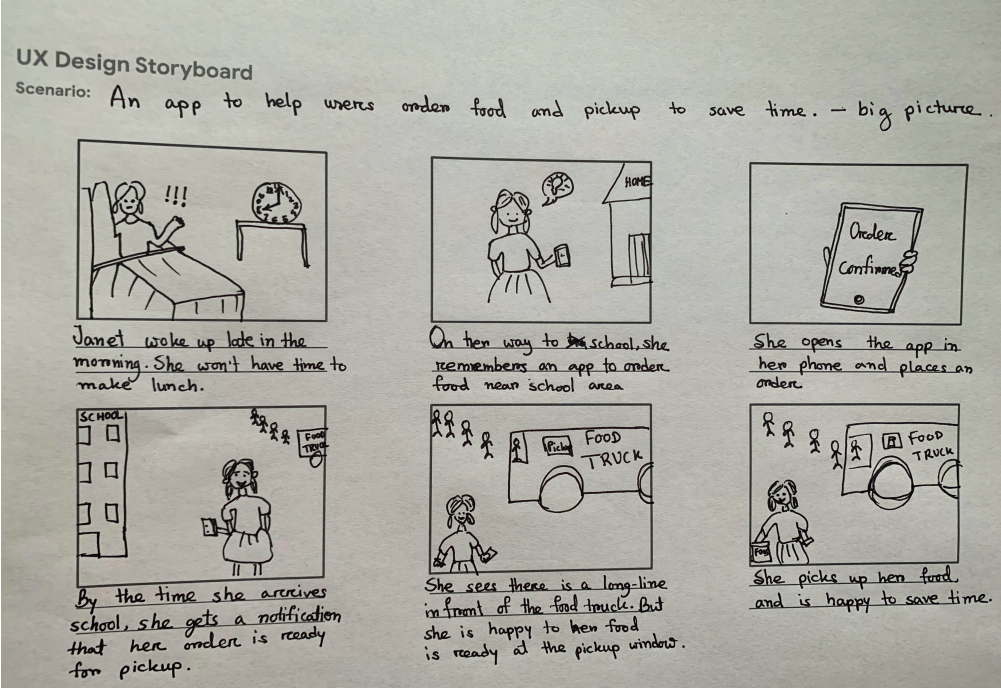 UX Design Storyboard
Scenario: An app to help users order food and pickup to save time. – big picture.
!!!
HOME
Order
Confirmed
Janet woke up late in the
morning. She won't have time to
make lunch.
On her way to school, she
remembers an app to order
food near school area
She opens the app in
her phone and places an
order
SCHOOL
FOOD
TRUCK
Pickup
FOOD
TRUCK
FOOD
TRUCK
Food
By the time she arrives
school, she gets a notification
that her order is ready
for pickup.
She sees there is a long-line
in front of the food truck. But
she is happy to her food
is ready at the pickup window.
She picks up her food
and is happy to save time.